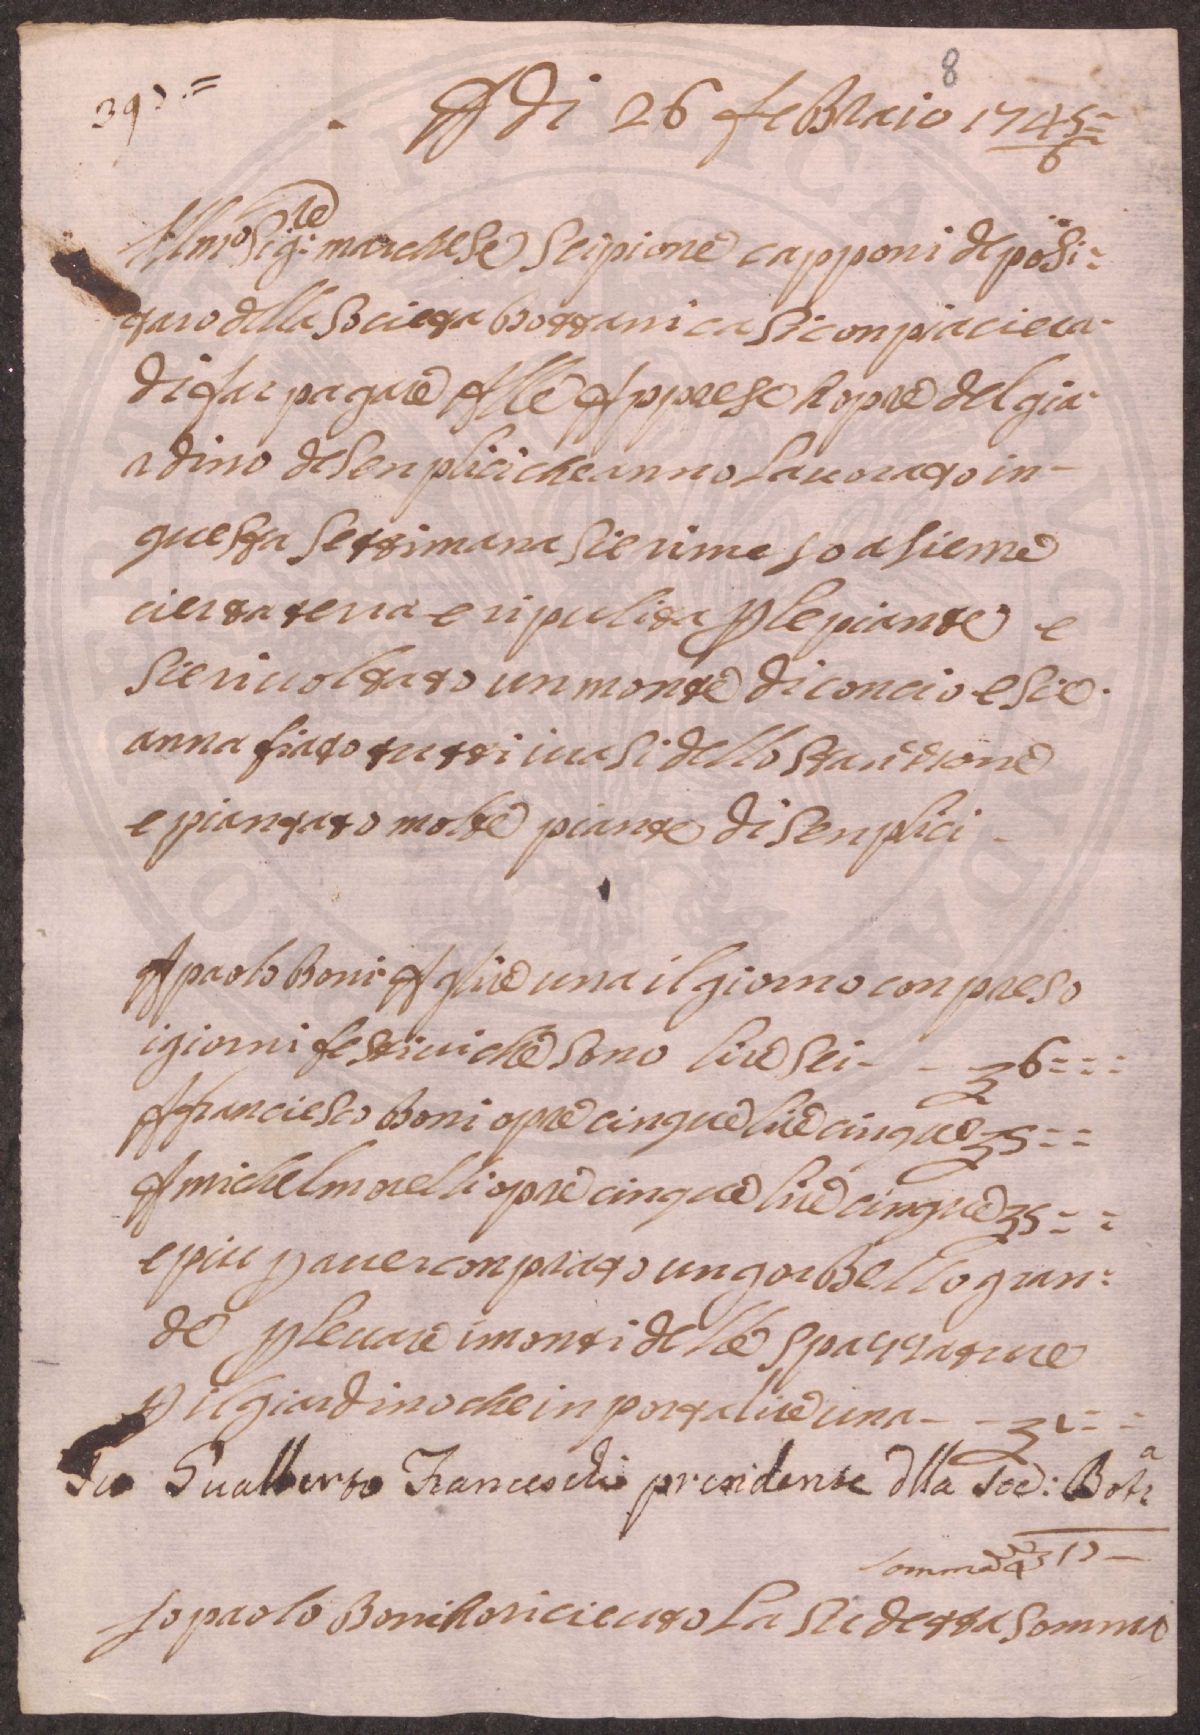 8
A Di 26 feBBraio 1745
6
Illmo Sig:re marchese Scipione capponi deposi=
taro della Societa Bottanica si conpiaciera
di far pagare Alle Apprese hopre del gia-
rdino de Senplici che anno lavorato in-
questa Settimana Sie rimeso asieme
cierta terra e ripulita p le piante e
Sie rivoltato un monte di concio e Sie
annafiato tutti i vasi dello Stantione
e piantato molte piante di Senplici -
A paolo Boni A lire una il giorno conpreso
i giorni festivi che sono lire Sei - - 6 = = =
A franciesco Boni opre cinque lire cinque 5 = =
A michel morelli opre cinque lire cinque 5 = =
e piu p aver conprato un gorbello gran=
de p levare i monti delle spazzature
p il giardino che inporta lire una - - 1 = =
Gio Gualberto Franceschi presidente dlla Soc: Bota
somma 17 -
Io paolo Boni ho riceuto La Su detta Somma